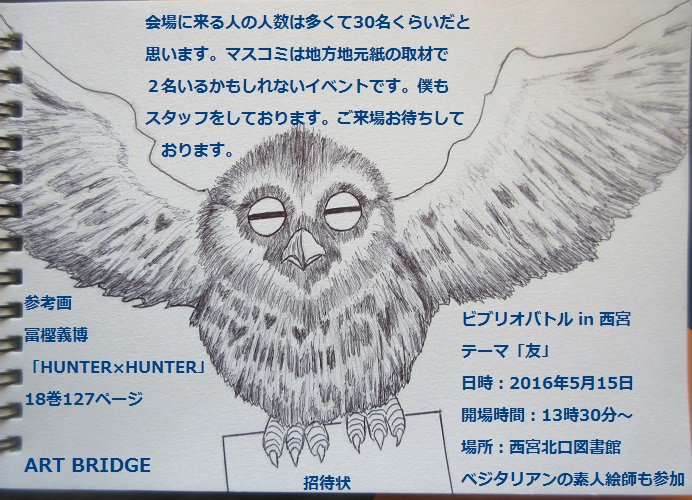 会場に来る人の人数は多くて30名くらいだと
思います。マスコミは地方地元紙の取材で
２名いるかもしれないイベントです。僕も
スタッフをしております。ご来場お待ちして
おります。
参考画
冨樫義博
「HUNTER×HUNTER」
18巻127ページ
ART BRIDGE
招待状
ビブリオバトル in 西宮
テーマ「友」
日時：2016年5月15日
開場時間：13時30分～
場所：西宮北口図書館
ベジタリアンの素人絵師も参加